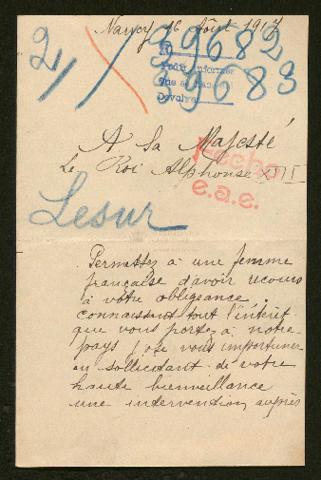 Nancy 16 Août 1917
39682
39683
21/
Pedir informer
que se
Devolver
A Sa Majesté
Le Roi Alphonse XIII
Fecho
e.a.e.
Lesur
Permettez à une femme
française d'avoir recours
à votre obligeance,
connaissant tout l'intérêt
que vous portez à notre
pays j'ose vous importuner
en sollicitant de votre
haute bienveillance
une intervention auprès